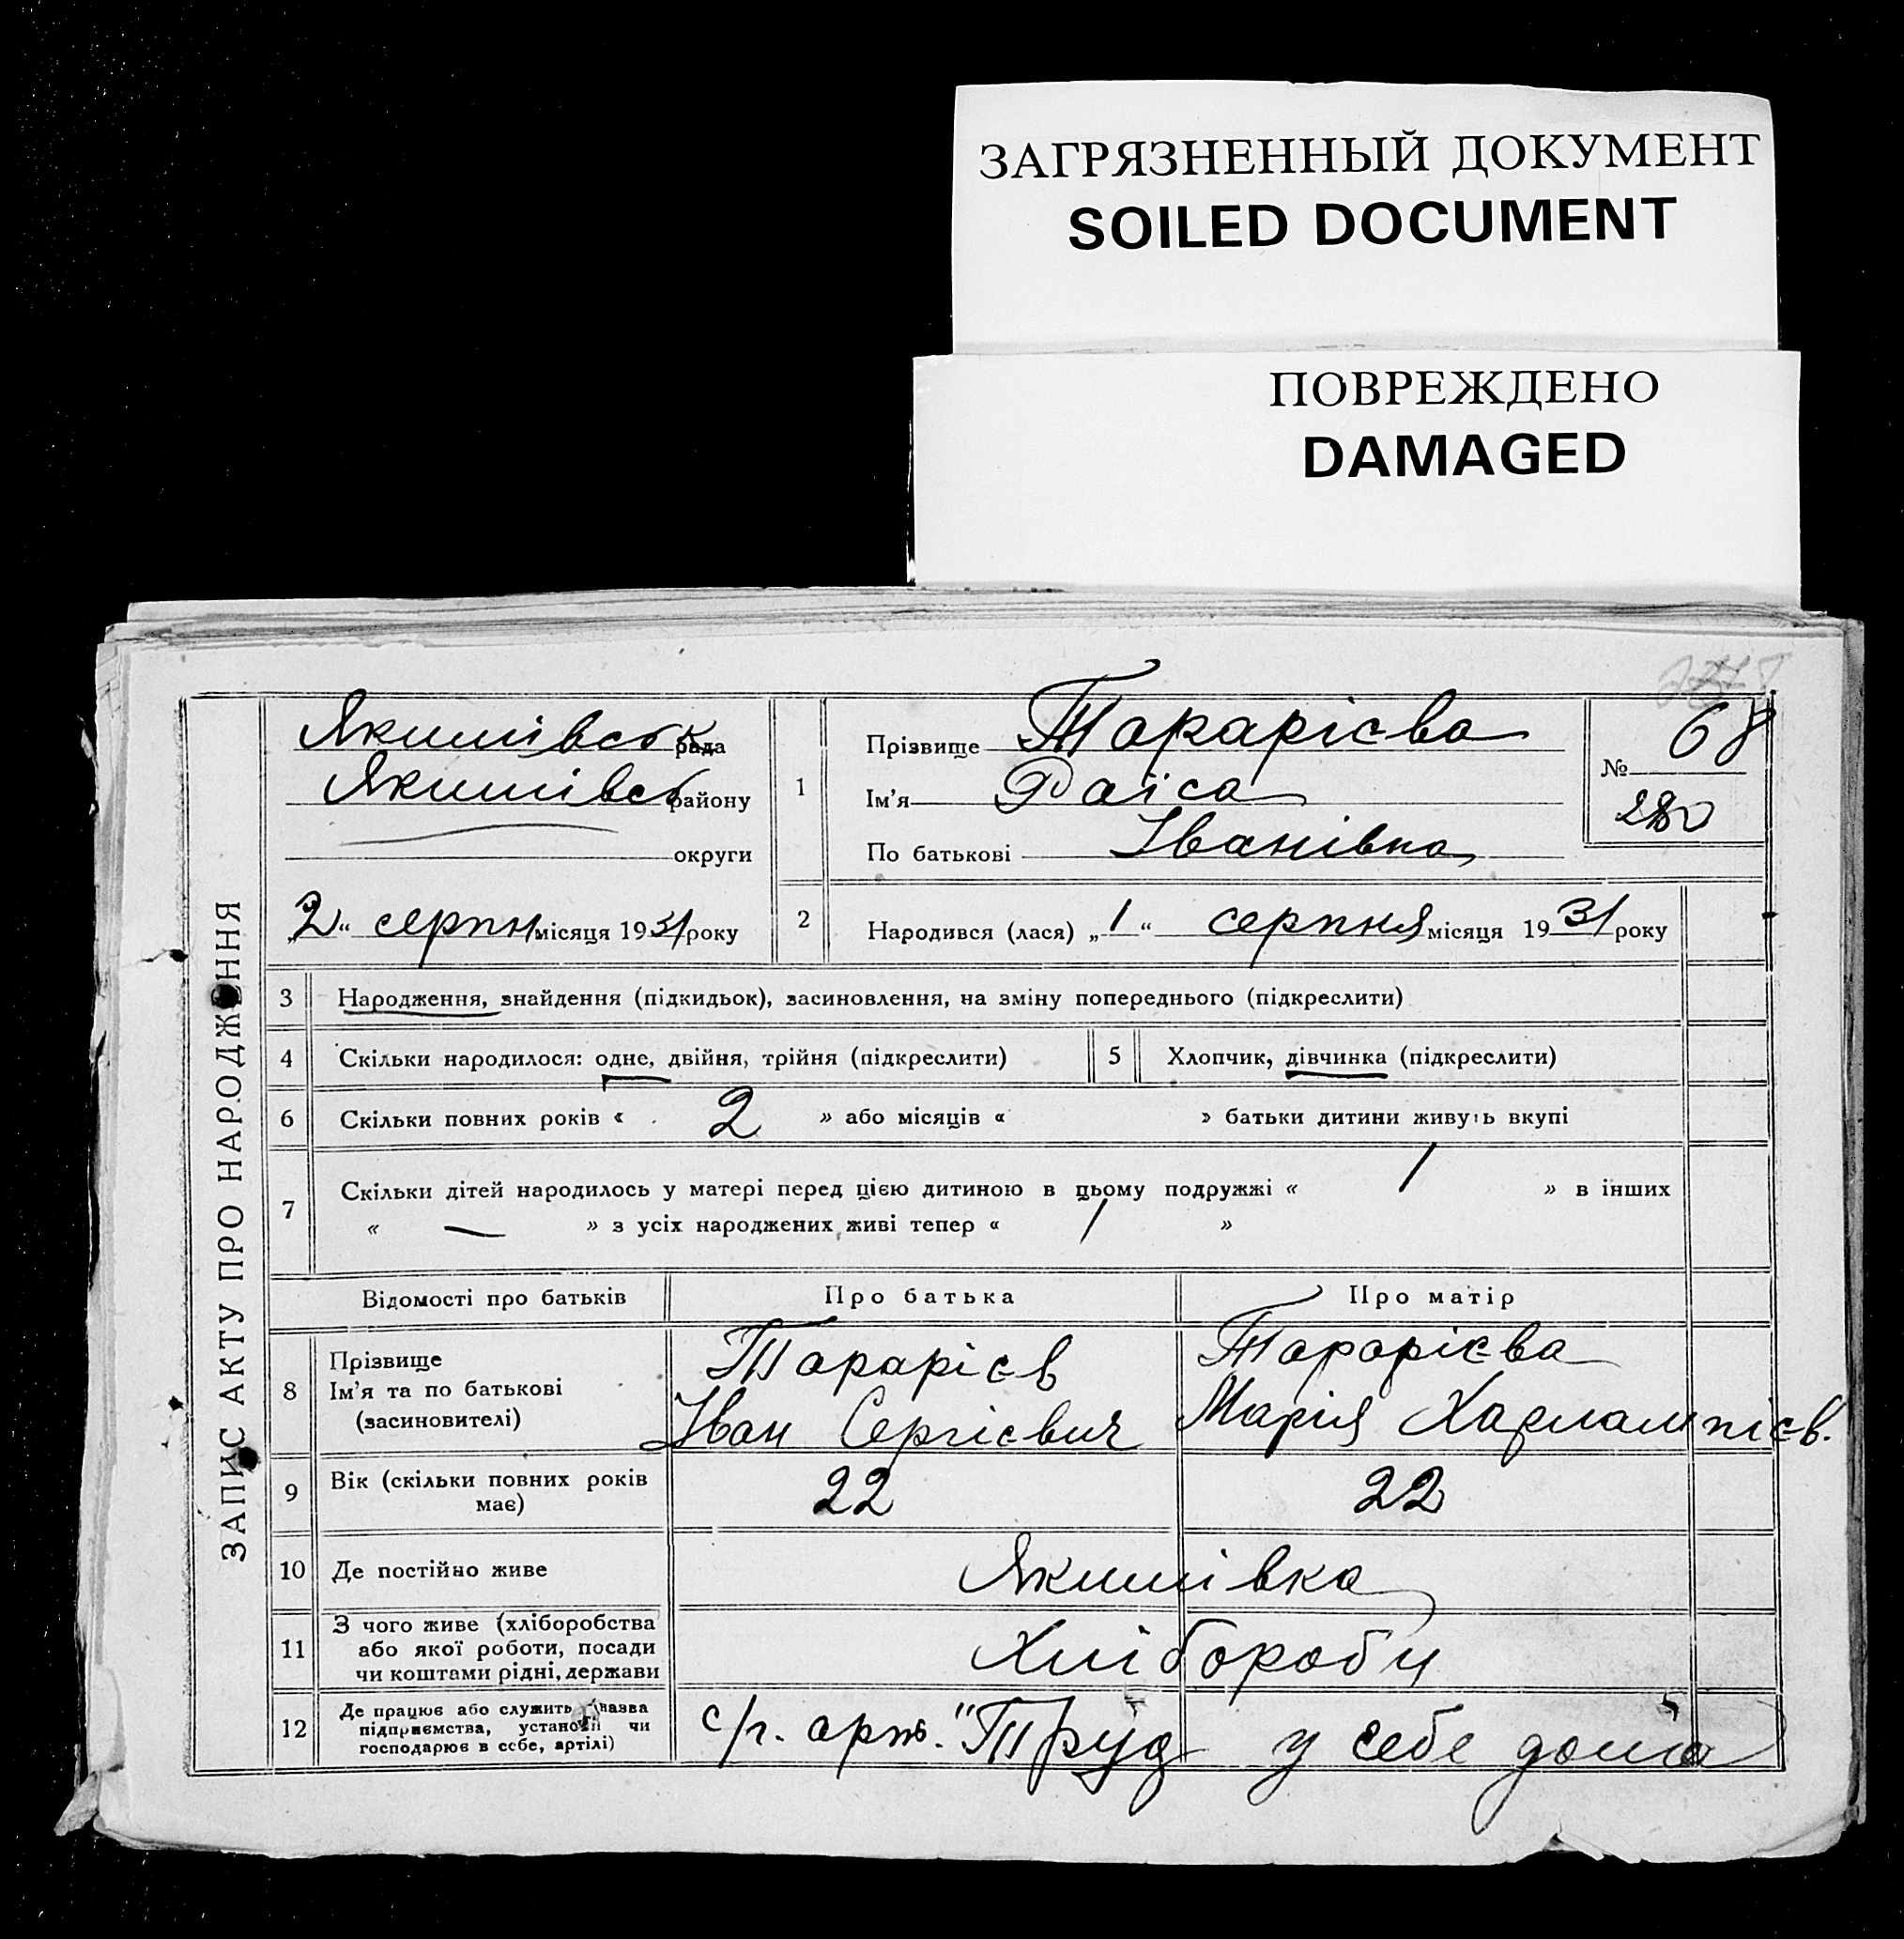 ЗАГРЯЗНЕННЫЙ ДОКУМЕНТ
SOILED DOCUMENT
ПОВРЕЖДЕНО
DAMAGED
ЗАПИС АКТУ ПРО НАРОДЖЕННЯ
Якимівськ рада
Якимівсь району
округи
„2“ серпня місяця 1931 року
1
Прізвище Тарарієва
Ім'я Раїса
По батькові Іванівна
№ 68
280
2 Народився (лася) „1“ серпня місяця 1931 року
3 Народження, знайдення (підкидьок), засиновлення, на зміну попереднього (підкреслити)
4 Скільки народилося: одне, двійня, трійня (підкреслити) 5 Хлопчик, дівчинка (підкреслити)
6 Скільки повних років « 2 » або місяців « » батьки дитини живуть вкупі
7 Скільки дітей народилось у матері перед цією дитиною в цьому подружжі « 1 » в інших
« — » з усіх народжених живі тепер « 1 »
Відомості про батьків Про батька Про матір
8 Прізвище
Ім'я та по батькові
(засиновителі)
Тарарієв
Іван Сергієвич
Тарарієва
Марія Харлампієв.
9 Вік (скільки повних років
має)
22 22
10 Де постійно живе Якимівка
11 З чого живе (хліборобства
або якої роботи, посади
чи коштами рідні, держави
Хлібороби
12 Де працює або служить (назва
підприємства, установи чи
господарює в себе, артілі)
с/г. арт. "Труд у себе дома